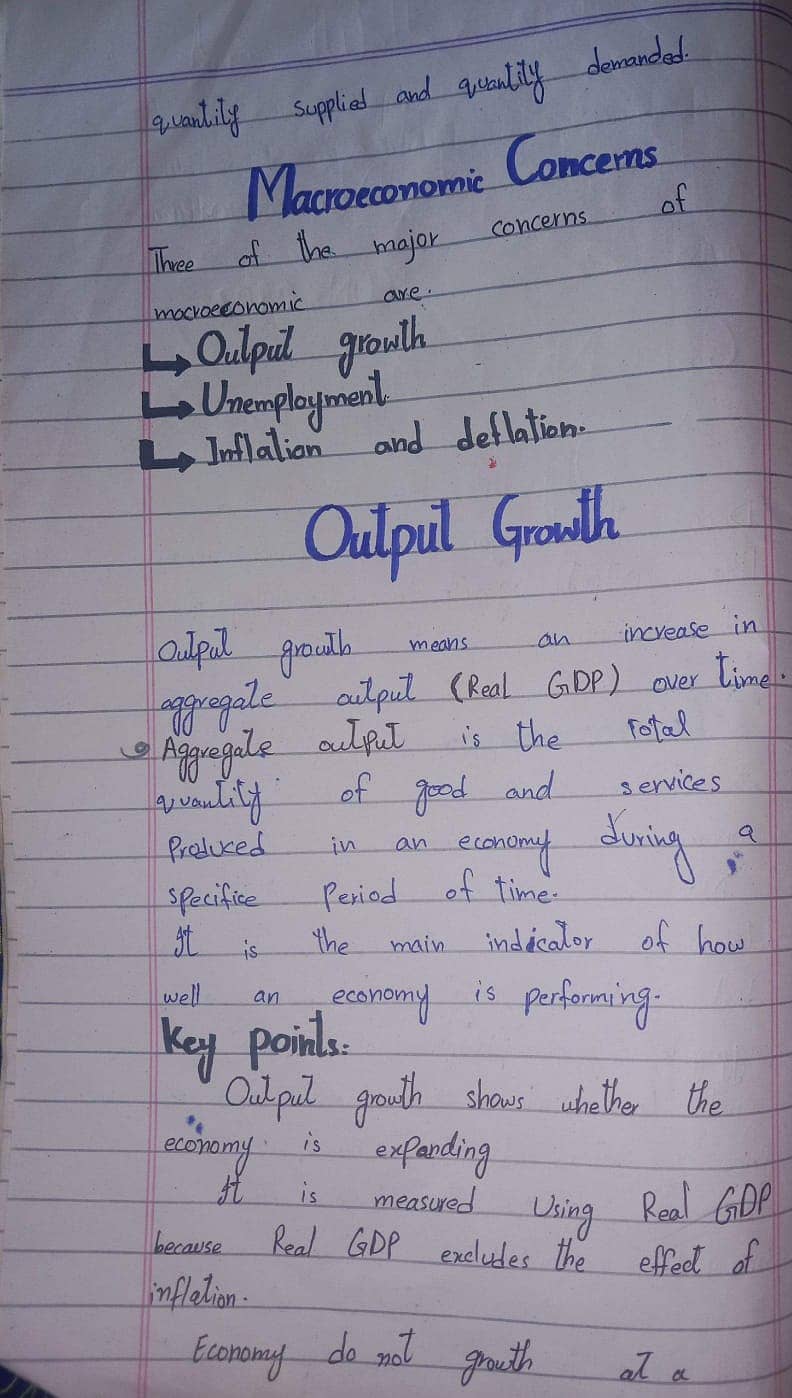 quantity supplied and quantity demanded.
Macroeconomic Concerns
Three of the major concerns of
macroeconomic are.
Output growth
Unemployment
Inflation and deflation.
Output Growth
Output growth means an increase in
aggregate output (Real GDP) over time.
Aggregate output is the Total
quantity of good and services
Produced in an economy during a
specifice Period of time.
It is the main indicator of how
well an economy is performing.
Key points:
Output growth shows whether the
economy is expanding
It is measured Using Real GDP
because Real GDP excludes the effect of
inflation.
Economy do not growth at a